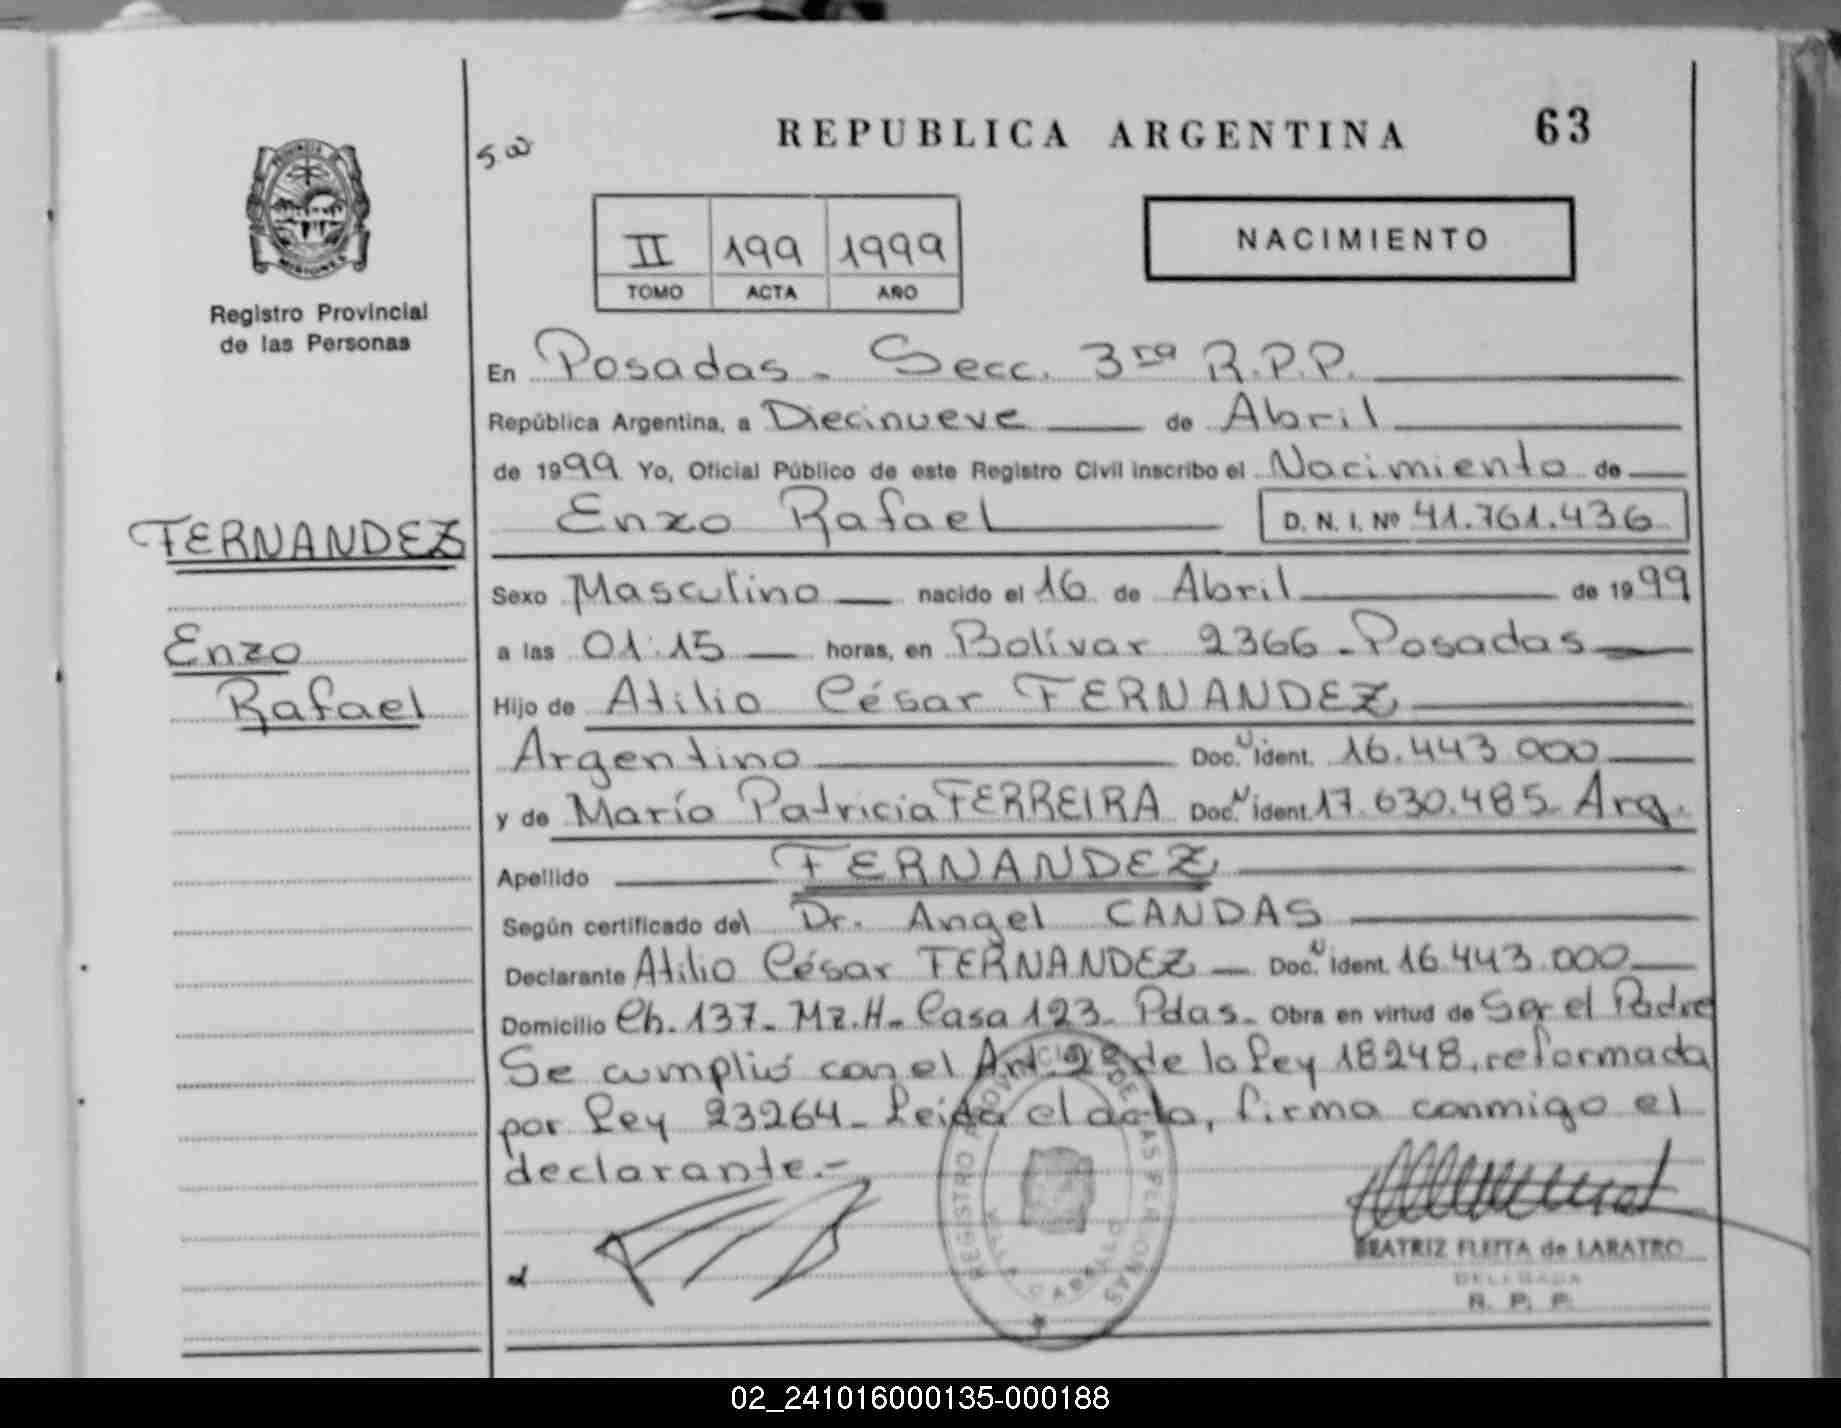 REPUBLICA ARGENTINA 63
PROVINCIA DE
MISIONES
Registro Provincial
de las Personas
II 199 1999
TOMO ACTA AÑO
NACIMIENTO
En Posadas - Secc. 3ra R.P.P.
República Argentina, a Diecinueve de Abril
de 1999 Yo, Oficial Público de este Registro Civil inscribo el Nacimiento de
Enzo Rafael D. N. I. Nº 41.761.436
FERNANDEZ
Enzo
Rafael
Sexo Masculino nacido el 16 de Abril de 1999
a las 01:15 horas, en Bolívar 2366 - Posadas
Hijo de Atilio César FERNANDEZ
Argentino Doc. N ident. 16.443.000
y de María Patricia FERREIRA Doc. N ident. 17.630.485 Arg.
Apellido FERNANDEZ
Según certificado del Dr. Angel CANDAS
Declarante Atilio César FERNANDEZ Doc. N ident. 16.443.000
Domicilio Ch. 137 - Mz. H - Casa 123 - Pdas. - Obra en virtud de Ser el Padre
Se cumplió con el Art. 2º de la Ley 18248, reformada
por Ley 23264 - Leida el acta, firma conmigo el
declarante.-
REGISTRO PROVINCIAL DE LAS PERSONAS
BEATRIZ FLEITA de LARATRO
DELEGADA
R. P. P.
02_241016000135-000188